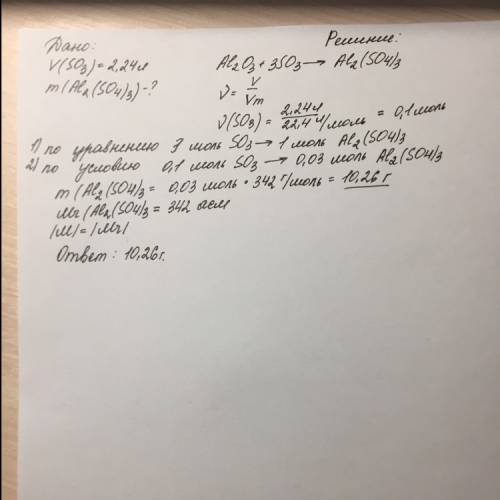 Дано:
Решение:
V(SO3) = 2,24 л
m(Al2(SO4)3) - ?
Al2O3 + 3SO3 → Al2(SO4)3
ν = V/Vm
ν(SO3) = 2,24 л / 22,4 л/моль = 0,1 моль
1) по уравнению 3 моль SO3 → 1 моль Al2(SO4)3
2) по условию 0,1 моль SO3 → 0,03 моль Al2(SO4)3
m(Al2(SO4)3 = 0,03 моль • 342 г/моль = 10,26 г
Mr(Al2(SO4)3 = 342 аем
|M| = |Mr|
Ответ: 10,26 г.